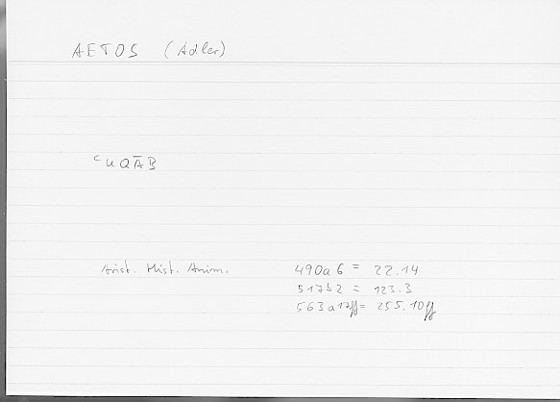 AETOS (Adler)
ᶜUQĀB
Arist. Hist. Anim. 490a6 = 22.14
517b2 = 123.3
563a17ff = 255.10ff